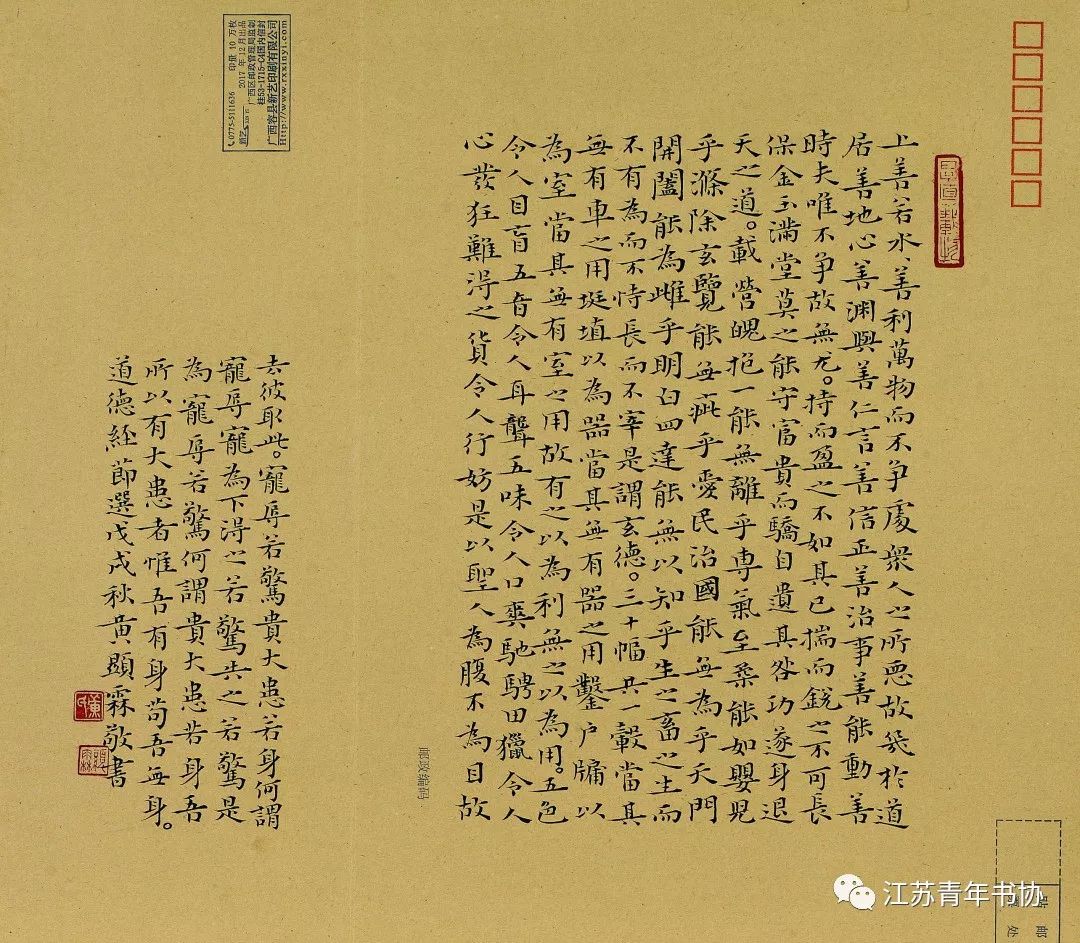 上善若水、善利萬物而不争處衆人之所惡故幾於道
居善地心善渊與善仁言善信正善治事善能動善
時夫唯不争故無尤。持而盈之不如其已揣而銳之不可長
保金玉滿堂莫之能守富貴而驕自遺其咎功遂身退
天之道。載營魄抱一能無離乎専氣至柔能如嬰兒
乎滌除玄覽能無疵乎愛民治國能無為乎天門
開闔能為雌乎明白四達能無以知乎生之畜之生而
不有為而不恃長而不宰是謂玄德。三十幅共一轂當其
無有車之用埏埴以為器當其無有器之用鑿户牖以
為室當其無有室之用故有之以為利無之以為用。五色
令人目盲五音令人耳聾五味令人口爽馳騁田獵令人
心發狂難得之貨令人行妨是以聖人為腹不為目故
去彼取此。寵辱若驚貴大患若身何謂
寵辱寵為下得之若驚失之若驚是
為寵辱若驚何謂貴大患若身吾
所以有大患者惟吾有身苟吾無身。
道德經節選戊戌秋黄顯霖敬書
0775-5111636 印量 10 万枚
2017 年 12 月出品
广西区邮政管理局监制
桂53-1715-C4国内信封
广西容县新艺印刷有限公司
Http://www.rxxinyi.com
邮政编码
江苏青年书协